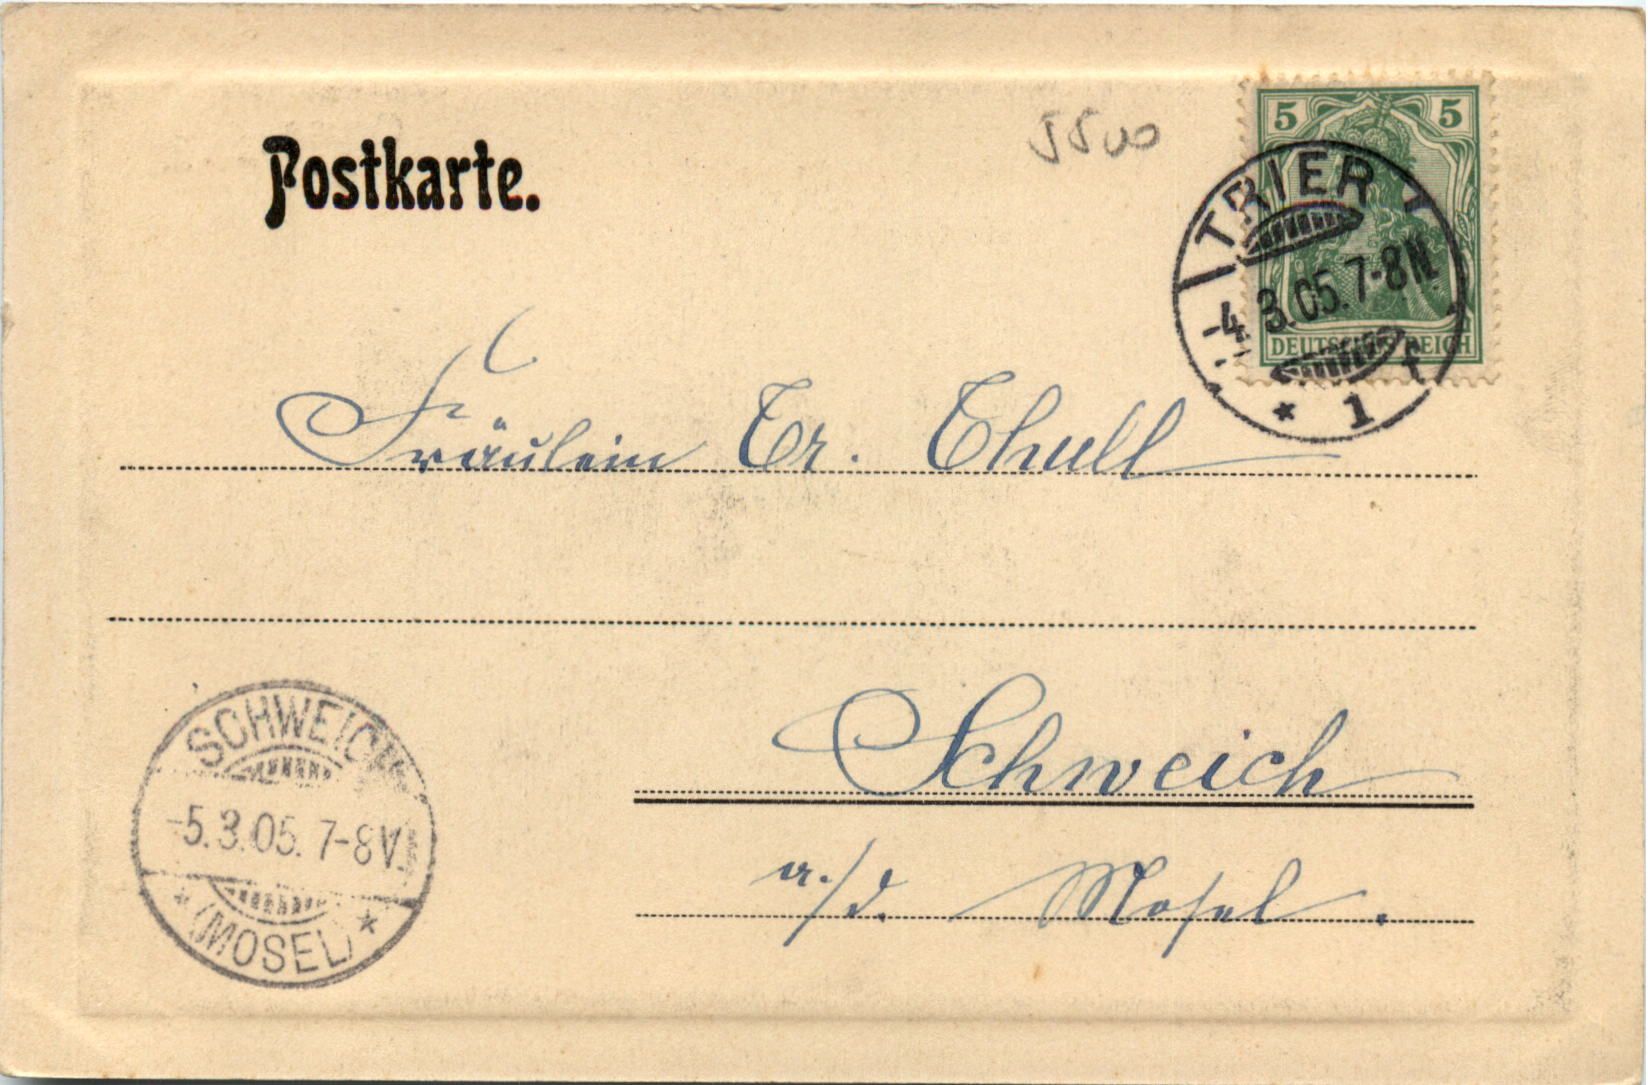 Postkarte.
5500
5 5
DEUTSCHES REICH
TRIER
-4.3.05.7-8N.
* 1 f
Fräulein Tr. Thull
Schweich
a./d. Mosel.
SCHWEICH
-5.3.05. 7-8V.
* (MOSEL) *